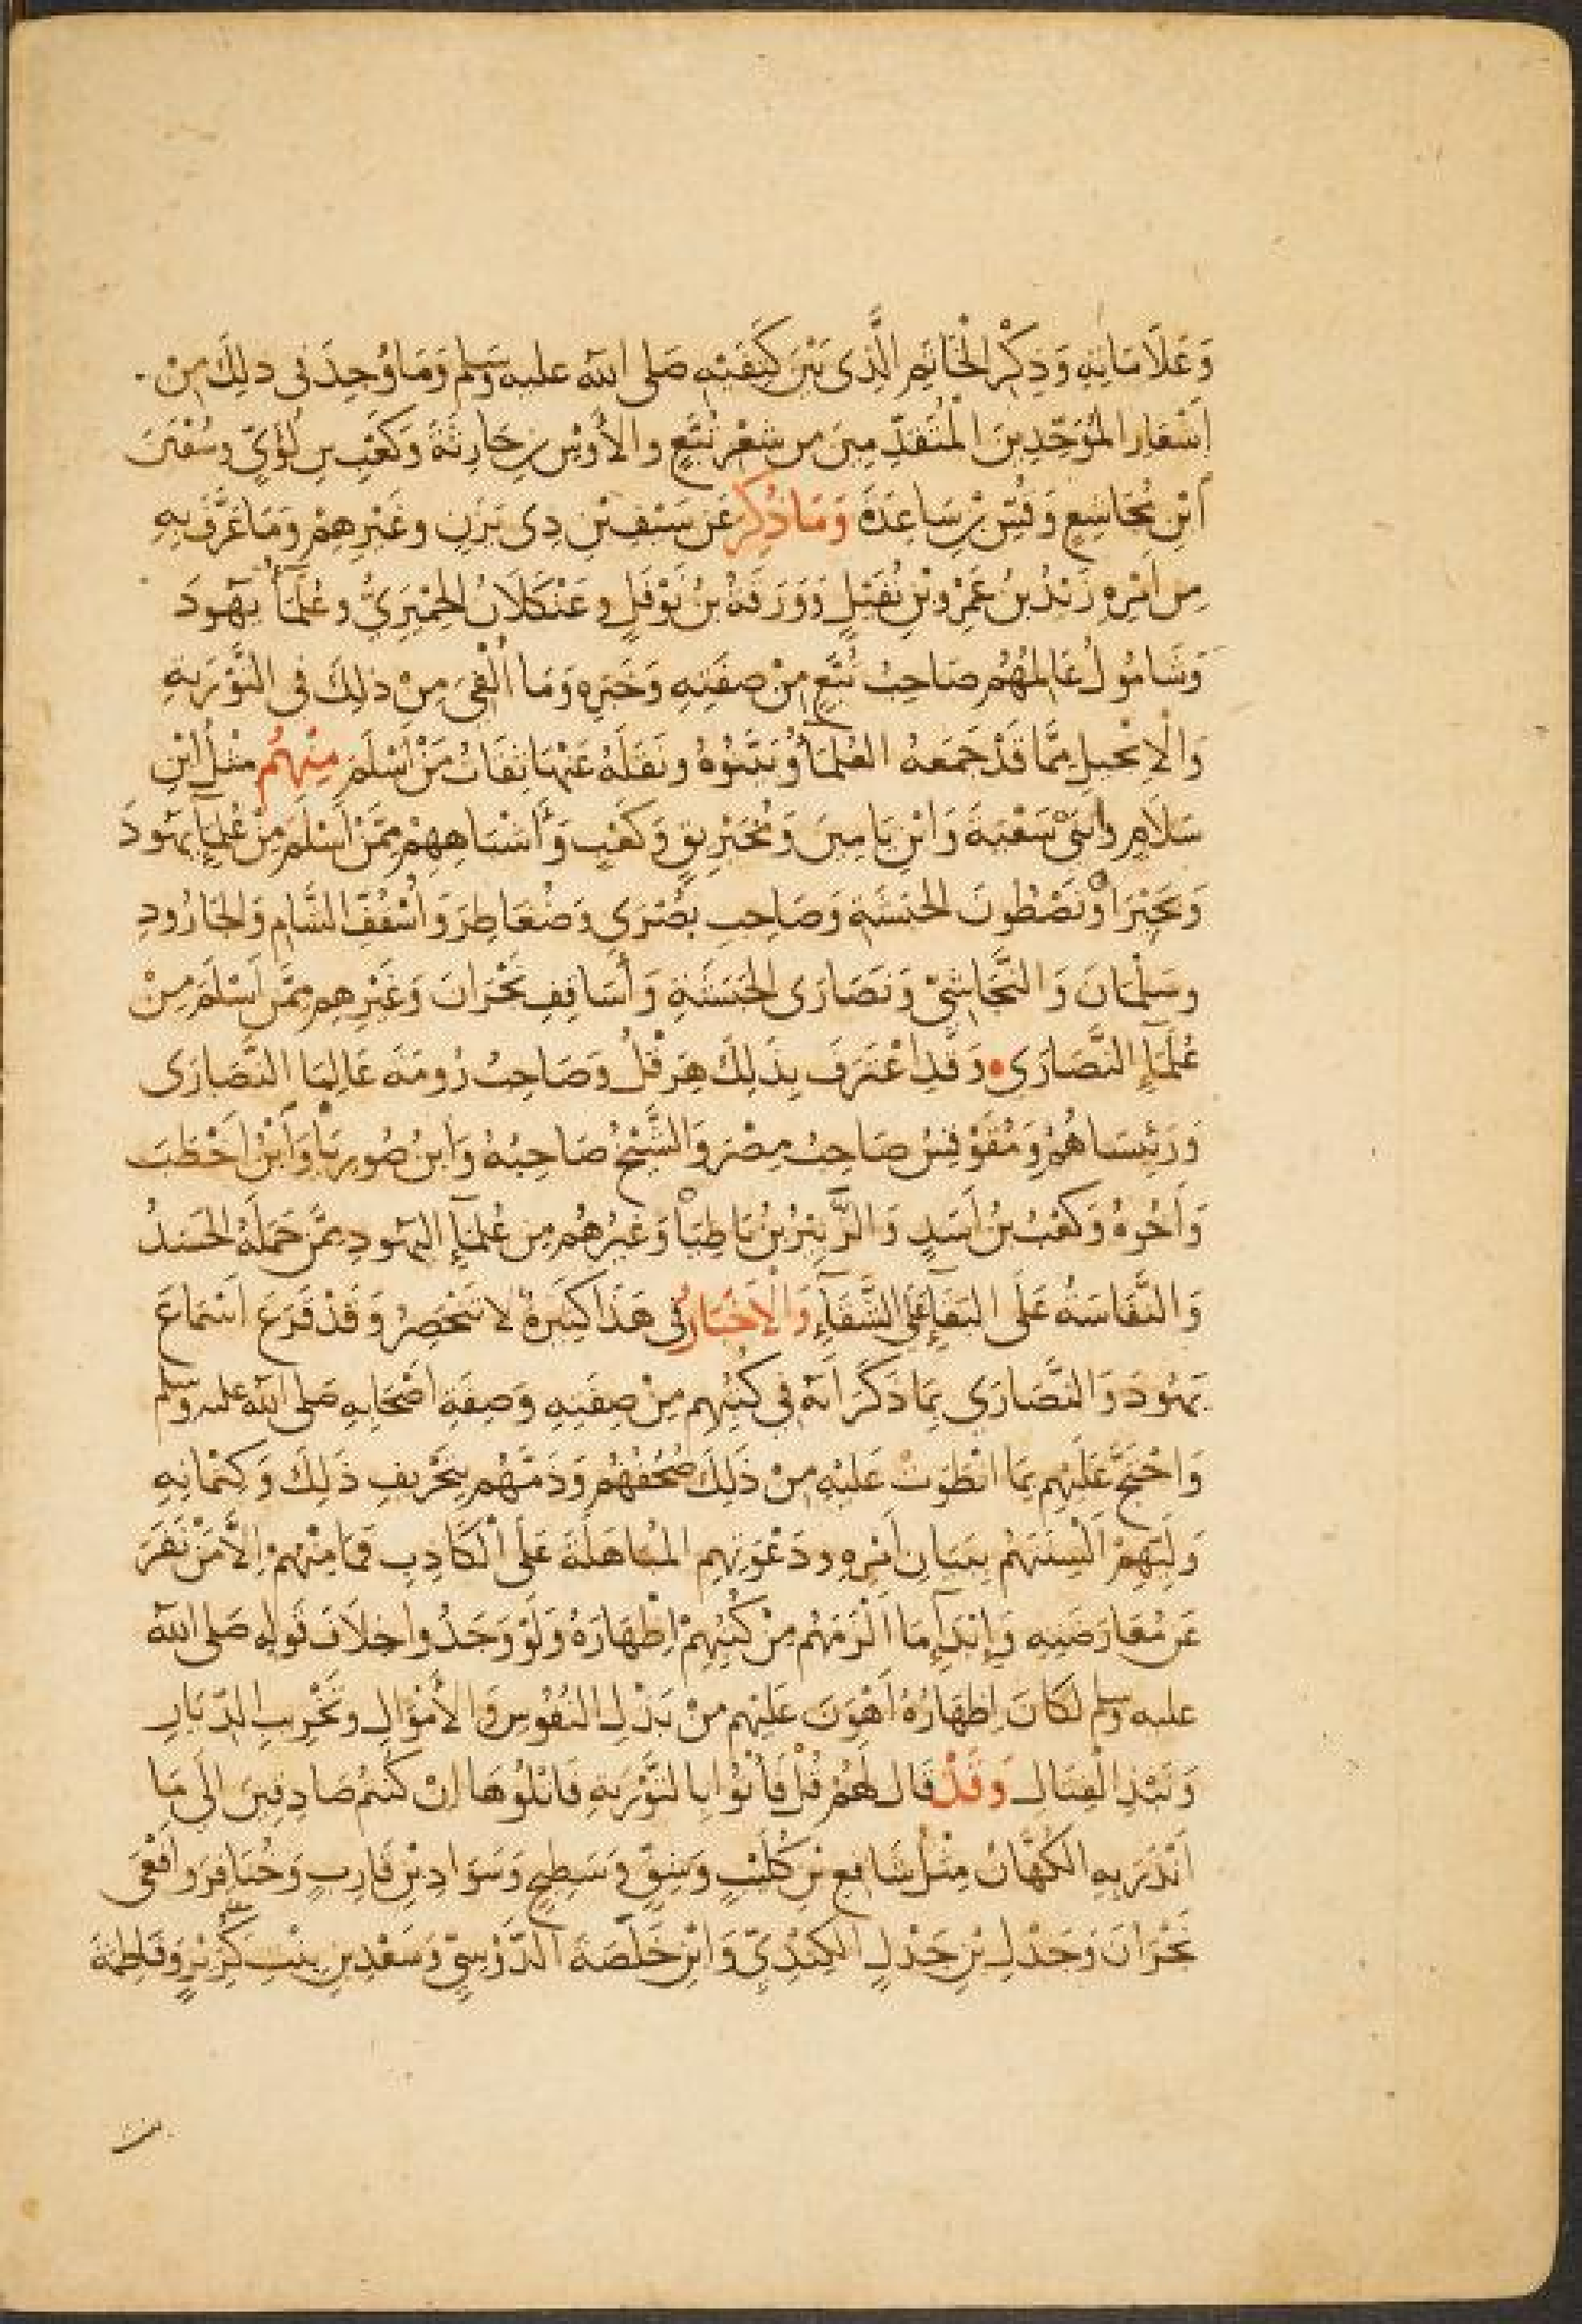 وَعَلَامَاتِهِ وَذِكْرُ الْخَاتَمِ الَّذِى بَيْنَ كَتِفَيْهِ صَلى الله عليه وسَلم وَمَا وُجِدَ فى ذلِكَ مِنْ
اَشْعَارِ الْمُوَحِّدِينَ الْمُتَقَدِّمِينَ مِن شِعْرِ تُبَّعٍ والأَوْسِ بنِ حَارِثَةَ وَكَعْبِ بنِ لُؤَيّ وسُفْيَنَ
ابْنِ مُجَاشِعٍ وَقُسِّ بْنِ سَاعِدَةَ وَمَا ذُكِرَ عَن سَيْفِ بْنِ ذِى يَزَنٍ وغَيْرِهِمْ وَمَا عَرَّفَ بِهِ
مِن اَمْرِهِ زَيْدُ بنُ عَمْرِو بْنِ نُفَيْلٍ وَوَرَقَةُ بنُ نَوْفَلٍ وعَثْكَلَانُ الحِمْيَرِيُّ وعُلَمَآءُ يَهُودَ
وَشَامُولُ عَالِمُهُم صَاحِبُ تُبَّعٍ مِنْ صِفَتِهِ وَخَبَرِهِ وَمَا اُلْفِىَ مِنْ ذلِكَ فى التَّوْرَيةِ
وَالْإِنْجِيلِ مِمَّا قَدْ جَمَعَهُ العُلَمَآءُ وَبَيَّنُوهُ ونَقَلَهُ عَنْهَا ثِقَاتُ مَنْ اَسْلَمَ مِنْهُم مِثْلُ ابْنِ
سَلَامٍ وابْنَىْ سَعْيَةَ وَابْنِ يَامِينَ وَمُخَيْرِيقٍ وَكَعْبٍ وَأَشْبَاهِهِمْ مِمَّنْ اَسْلَمَ مِنْ عُلَمَآءِ يَهُودَ
وَبَحِيْرَا وَنَصْطُورَ الحَبَشَةِ وَصَاحِبِ بُصْرَى وَضُغَاطِرَ وَاُسْقُفِّ الشَّامِ وَالجَارُودِ
وسَلْمَانَ وَالنَّجَاشِىّ وَنَصَارَى الحَبَشَةِ وَأَسَاقِفِ نَجْرَانَ وَغَيْرِهِم مِمَّن اَسْلَمَ مِنْ
عُلَمَآءِ النَّصَارَى وَقَدِ اعْتَرَفَ بِذَلِكَ هِرَقْلُ وَصَاحِبُ رُومَةَ عَالِمَا النَّصَارَى
وَرَئِيسَاهُمْ وَمُقَوْقِسُ صَاحِبُ مِصْرَ وَالشَّيْخُ صَاحِبُهُ وَابنُ صُورِيَا وَابْنُ اَخْطَبَ
وَاَخُوهُ وَكَعْبُ بنُ اَسَدٍ وَالزَّبِيْرُ بنُ بَاطِيَا وَغَيْرُهُم مِن عُلَمَآءِ اليَهُودِ مِمَّن حَمَلَهُ الحَسَدُ
وَالنَّفَاسَةُ عَلَى البَقَآءِ عَلَى الشَّقَآءِ وَالْأَخْبَارُ فى هَذَا كَثِيرَةٌ لا تَنْحَصِرُ وَقَدْ قَرَعَ اَسْمَاعَ
يَهُودَ وَالنَّصَارَى بِمَا ذَكَرَ اَنَّهُ فِى كُتُبِهِم مِنْ صِفَتِهِ وَصِفَةِ اَصْحَابِهِ صَلى الله عليه وسلم
وَاحْتَجَّ عَلَيْهِم بِمَا انْطَوَتْ عَلَيْهِ مِنْ ذَلِكَ صُحُفُهُم وَذَمَّهُم بِتَحْرِيفِ ذَلِكَ وَكِتْمَانِهِ
وَلَيِّهِمْ اَلْسِنَتَهُم بِبَيَانِ اَمْرِهِ ودَعْوَتِهِم المُبَاهَلَةَ عَلَى الْكَاذِبِ فَمَا مِنْهُمْ اِلَّا مَنْ نَفَرَ
عَن مُعَارَضَتِهِ وَإِبْدَآءِ مَا اَلْزَمَهُم مِنْ كُتُبِهِمْ اِظْهَارَهُ وَلَوْ وَجَدُوا خِلَافَ قَولِهِ صَلى الله
عليه وسلم لَكَانَ اِظْهَارُهُ اَهْوَنَ عَلَيْهِم مِنْ بَذْلِ النُفُوسِ وَالأَمْوَالِ وتَخْرِيبِ الدِّيَارِ
وَنَبْذِ الْقِتَالِ وَقَدْ قَال لَهُمْ قُلْ فَأْتُوا بِالتَّوْرَيةِ فَاتْلُوهَا اِنْ كُنتُم صَادِقِينَ اِلَى مَا
اَنْذَرَ بِهِ الكُهَّانُ مِثْلُ شَافِعِ بْنِ كُلَيْبٍ وَشِقٍّ وَسَطِيحٍ وَسَوَادِ بْنِ قَارِبٍ وَخُنَافِرَ وافْعَى
نَجْرَانَ وَجَذْلِ بْنِ جَذْلٍ الكِنْدِيّ وَابْنِ خَلَصَةَ الدَّوْسِيّ وَسَعْدِ بنِ بِنْتِ كُرَيْزٍ وَفَاطِمَةَ